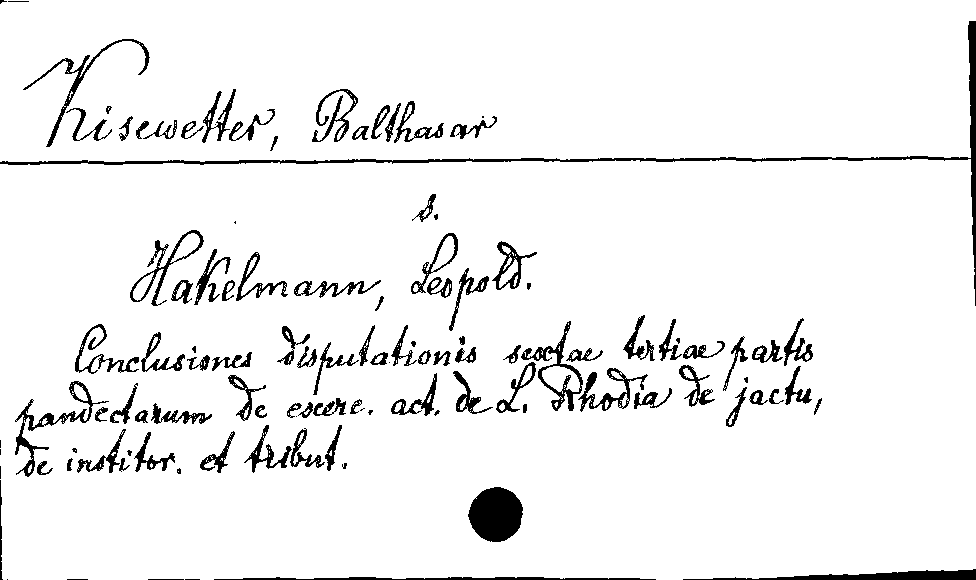 Kisewetter, Balthasar
s.
Hakelmann, Leopold.
Conclusiones disputationis sextae tertiae partis
pandectarum de exerc. act. de L. Rhodia de jactu,
de institor. et tribut.